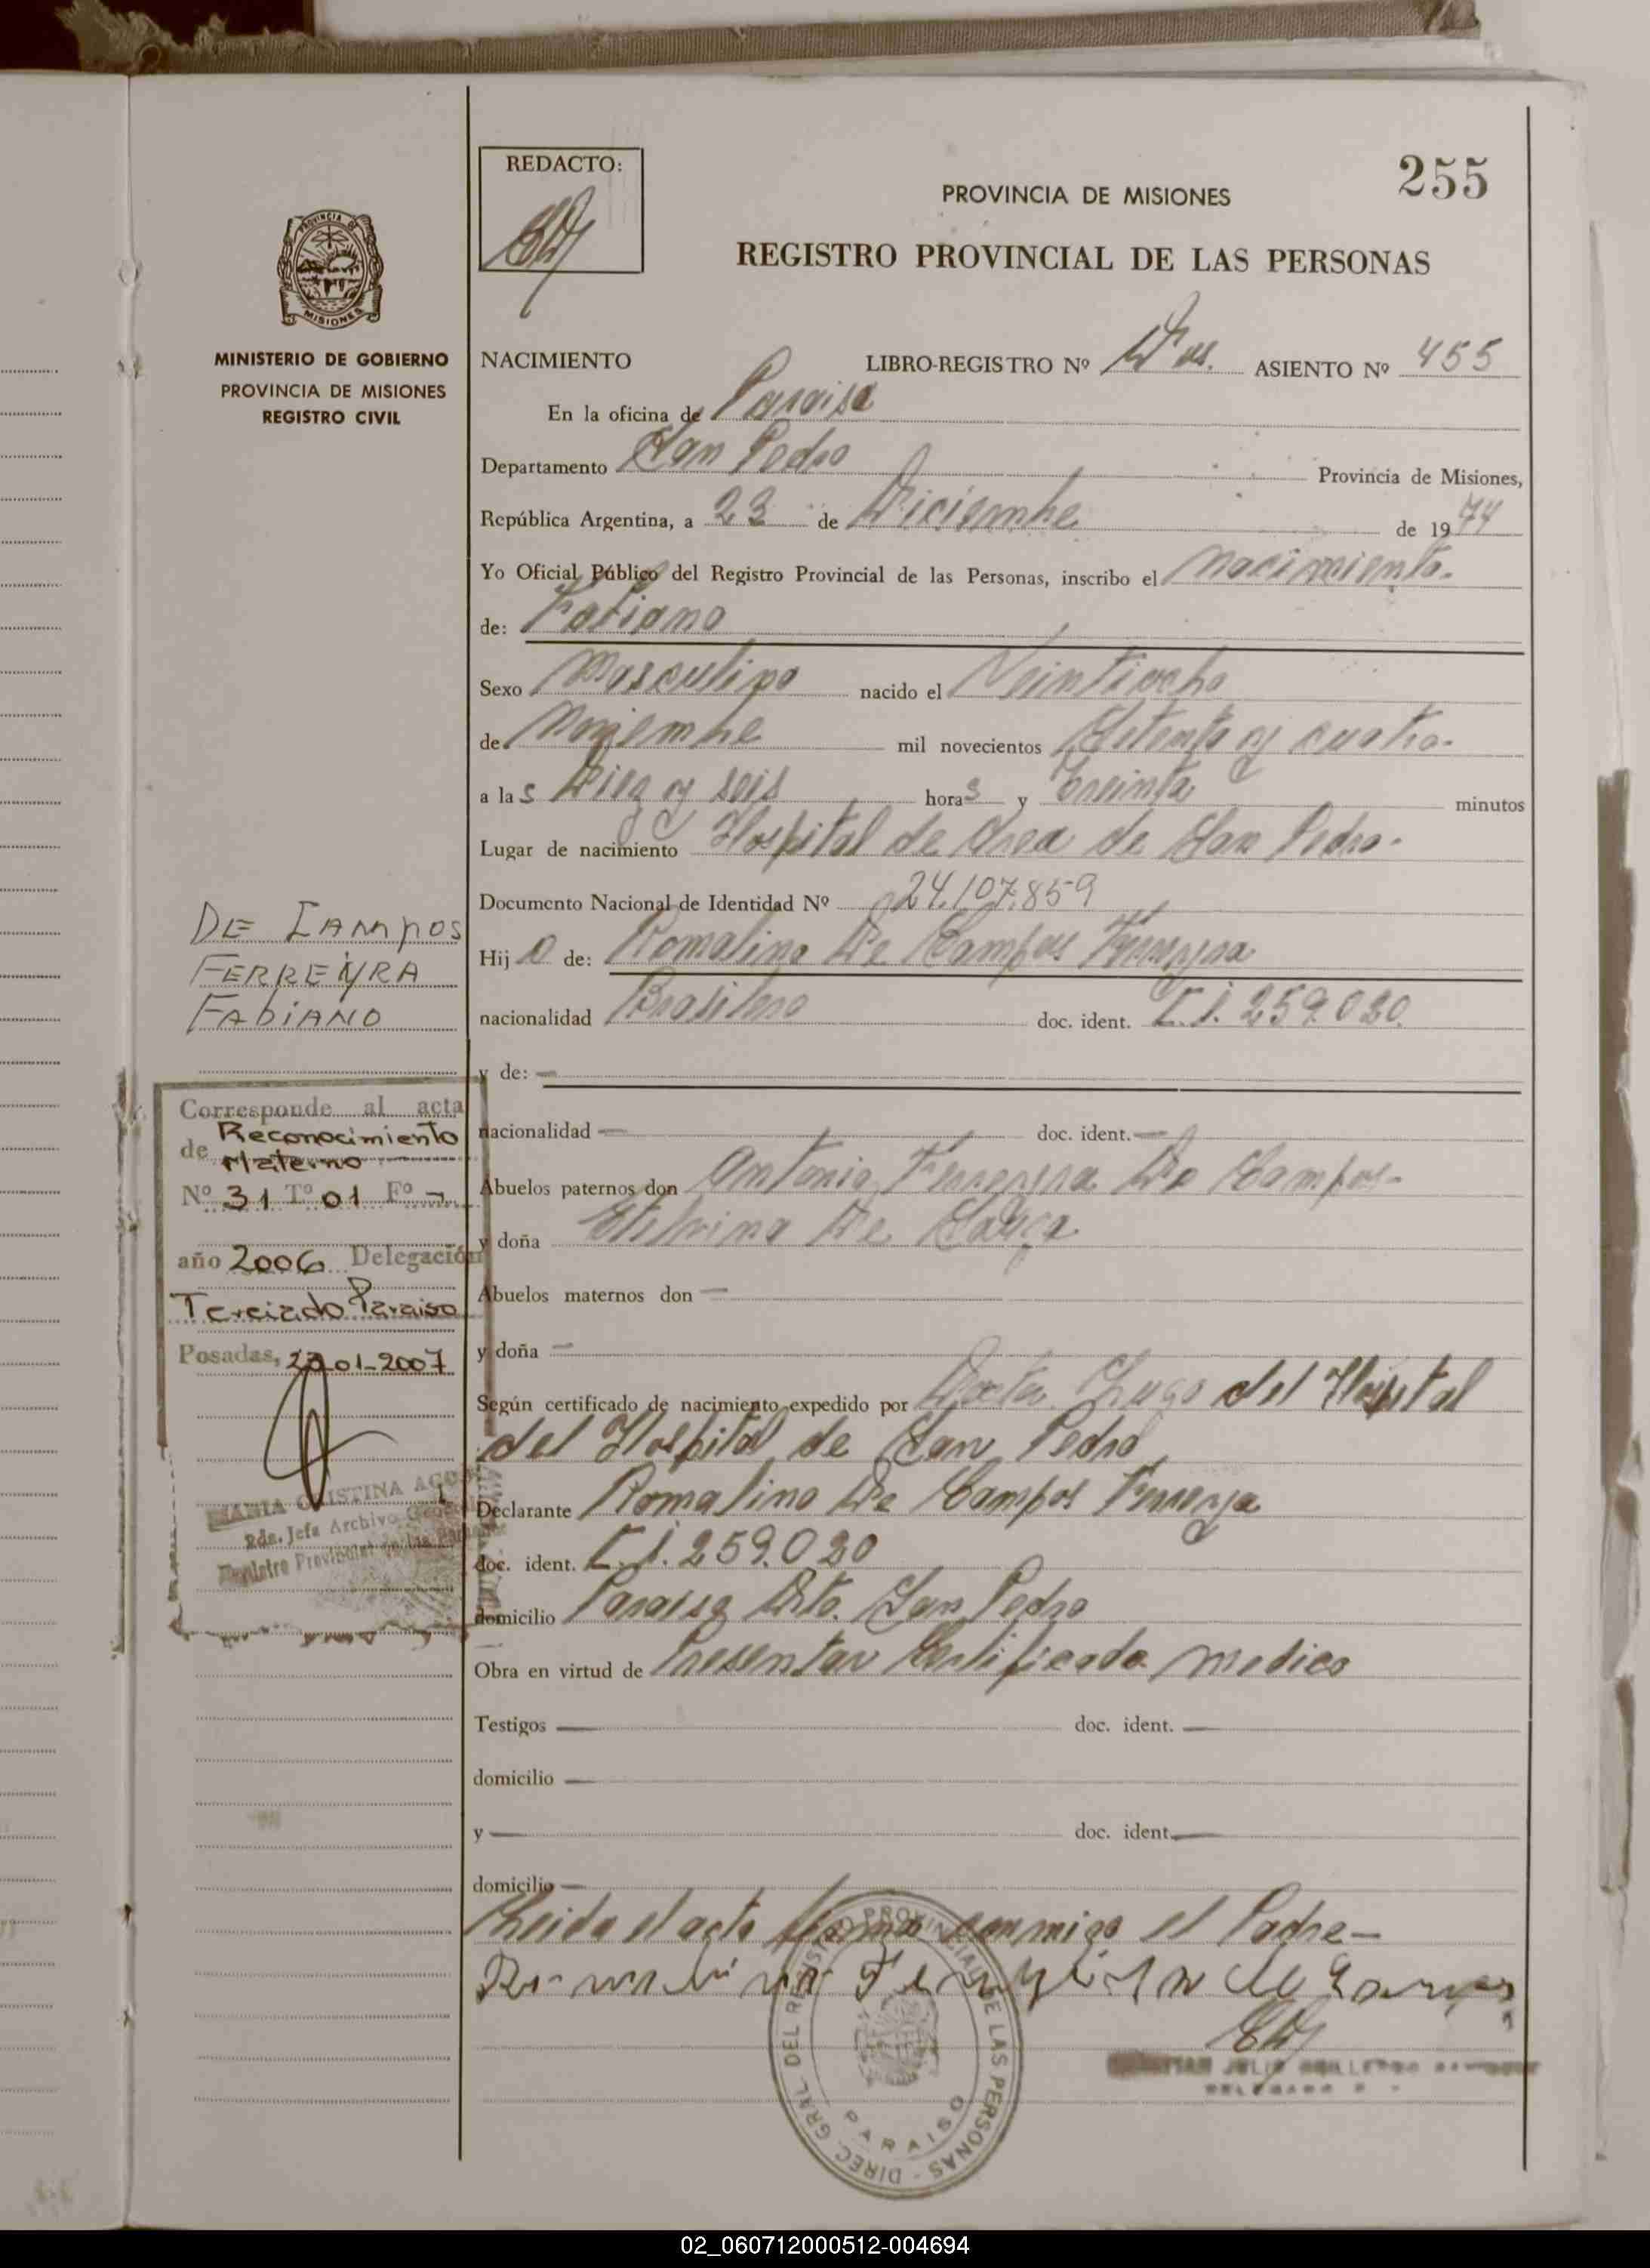 255
REDACTO:
PROVINCIA DE MISIONES
REGISTRO PROVINCIAL DE LAS PERSONAS
PROVINCIA DE
MISIONES
MINISTERIO DE GOBIERNO
PROVINCIA DE MISIONES
REGISTRO CIVIL
NACIMIENTO LIBRO-REGISTRO Nº Dos. ASIENTO Nº 455
En la oficina de Paraiso
Departamento San Pedro Provincia de Misiones,
República Argentina, a 23 de Diciembre de 1974
Yo Oficial Público del Registro Provincial de las Personas, inscribo el nacimiento.
de: Fabiano
Sexo Masculino nacido el Veintiocho
de Noviembre mil novecientos Setenta y cuatro.
a las Diez y seis horas y treinta minutos
Lugar de nacimiento Hospital de Area de San Pedro.
Documento Nacional de Identidad Nº 24.107.859
DE CAMPOS
FERREYRA
FABIANO
Hijo de: Romalino De Campos Ferreyra
nacionalidad Brasilero doc. ident. C.I. 259.020.
y de: —
nacionalidad — doc. ident. —
Corresponde al acta
de Reconocimiento
Materno
Nº 31 Tº 01 Fº —
año 2006 Delegación
Terciado Paraiso
Posadas, 23-01-2007
CRISTINA
2da. Jefa Archivo General
Registro Provincial de las Personas
Abuelos paternos don Antonio Ferreyra De Campos-
y doña De
Abuelos maternos don —
y doña —
Según certificado de nacimiento expedido por Doctor Lugo del Hospital
del Hospital de San Pedro
Declarante Romalino De Campos Ferreyra
doc. ident. C.I. 259.020
domicilio Paraiso Dto. San Pedro
Obra en virtud de Presentar Certificado medico
Testigos — doc. ident. —
domicilio —
y — doc. ident. —
domicilio —
Leido el acto firma conmigo el Padre-
DIREC. GRAL. DEL REGISTRO PROVINCIAL DE LAS PERSONAS -
PARAISO
JULIO GUILLERMO
DELEGADO
02_060712000512-004694